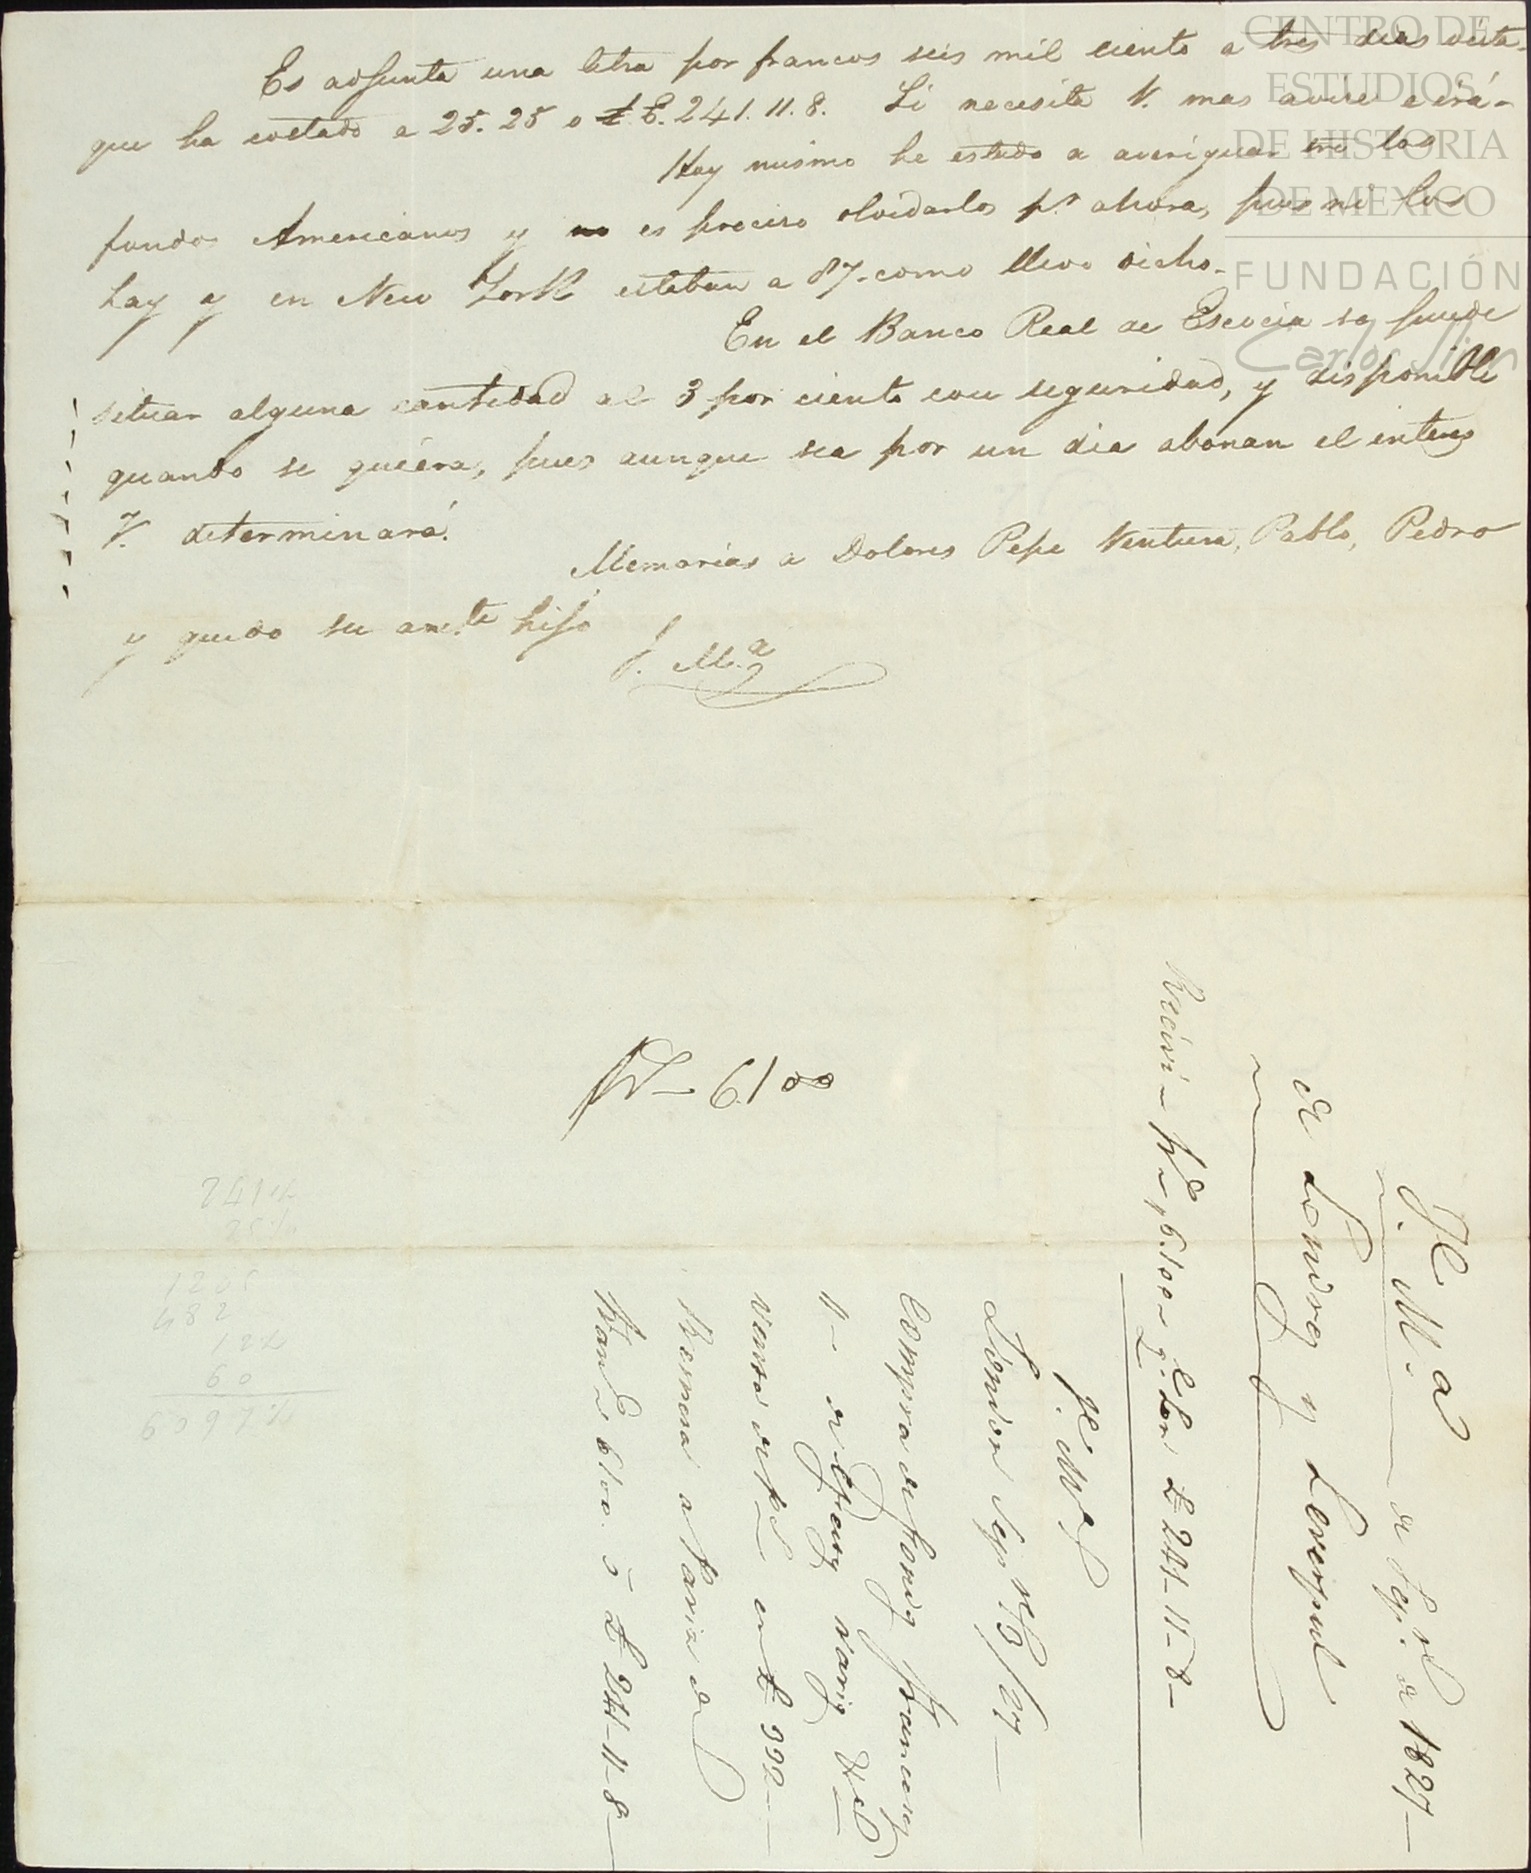 Es adjunta una letra por francos seis mil ciento a tres dias vista
que ha costado a 25.25 o £. 241.11.8. Si necesita V. mas avise
Hoy mismo he estado a averiguar los
fondos Americanos y no es preciso olvidarlos pr. ahora, pues no los
hay y en New York estaban a 87. como llevo dicho.
En el Banco Real de Escocia se puede
situar alguna cantidad al 3 por ciento con seguridad, y disponible
quando se quiera, pues aunque sea por un dia abonan el interes
V. determinará.
Memorias a Dolores Pepe Ventura, Pablo, Pedro
y quedo su am.te hijo
J. M.a
CENTRO DE
ESTUDIOS
DE HISTORIA
DE MEXICO
FUNDACIÓN
Carlos Slim
6100
J. M.a de Sep.e de 1827
de Londres y Liverpul
Recivi 6.100 £ 241-11-8
J. M.a
London Sep.e 13/27
Compra de fondos franceses
Venta de en £ 992
Remesa a Paris de
6100. £ 241-11-8
241
25
1205
482
60